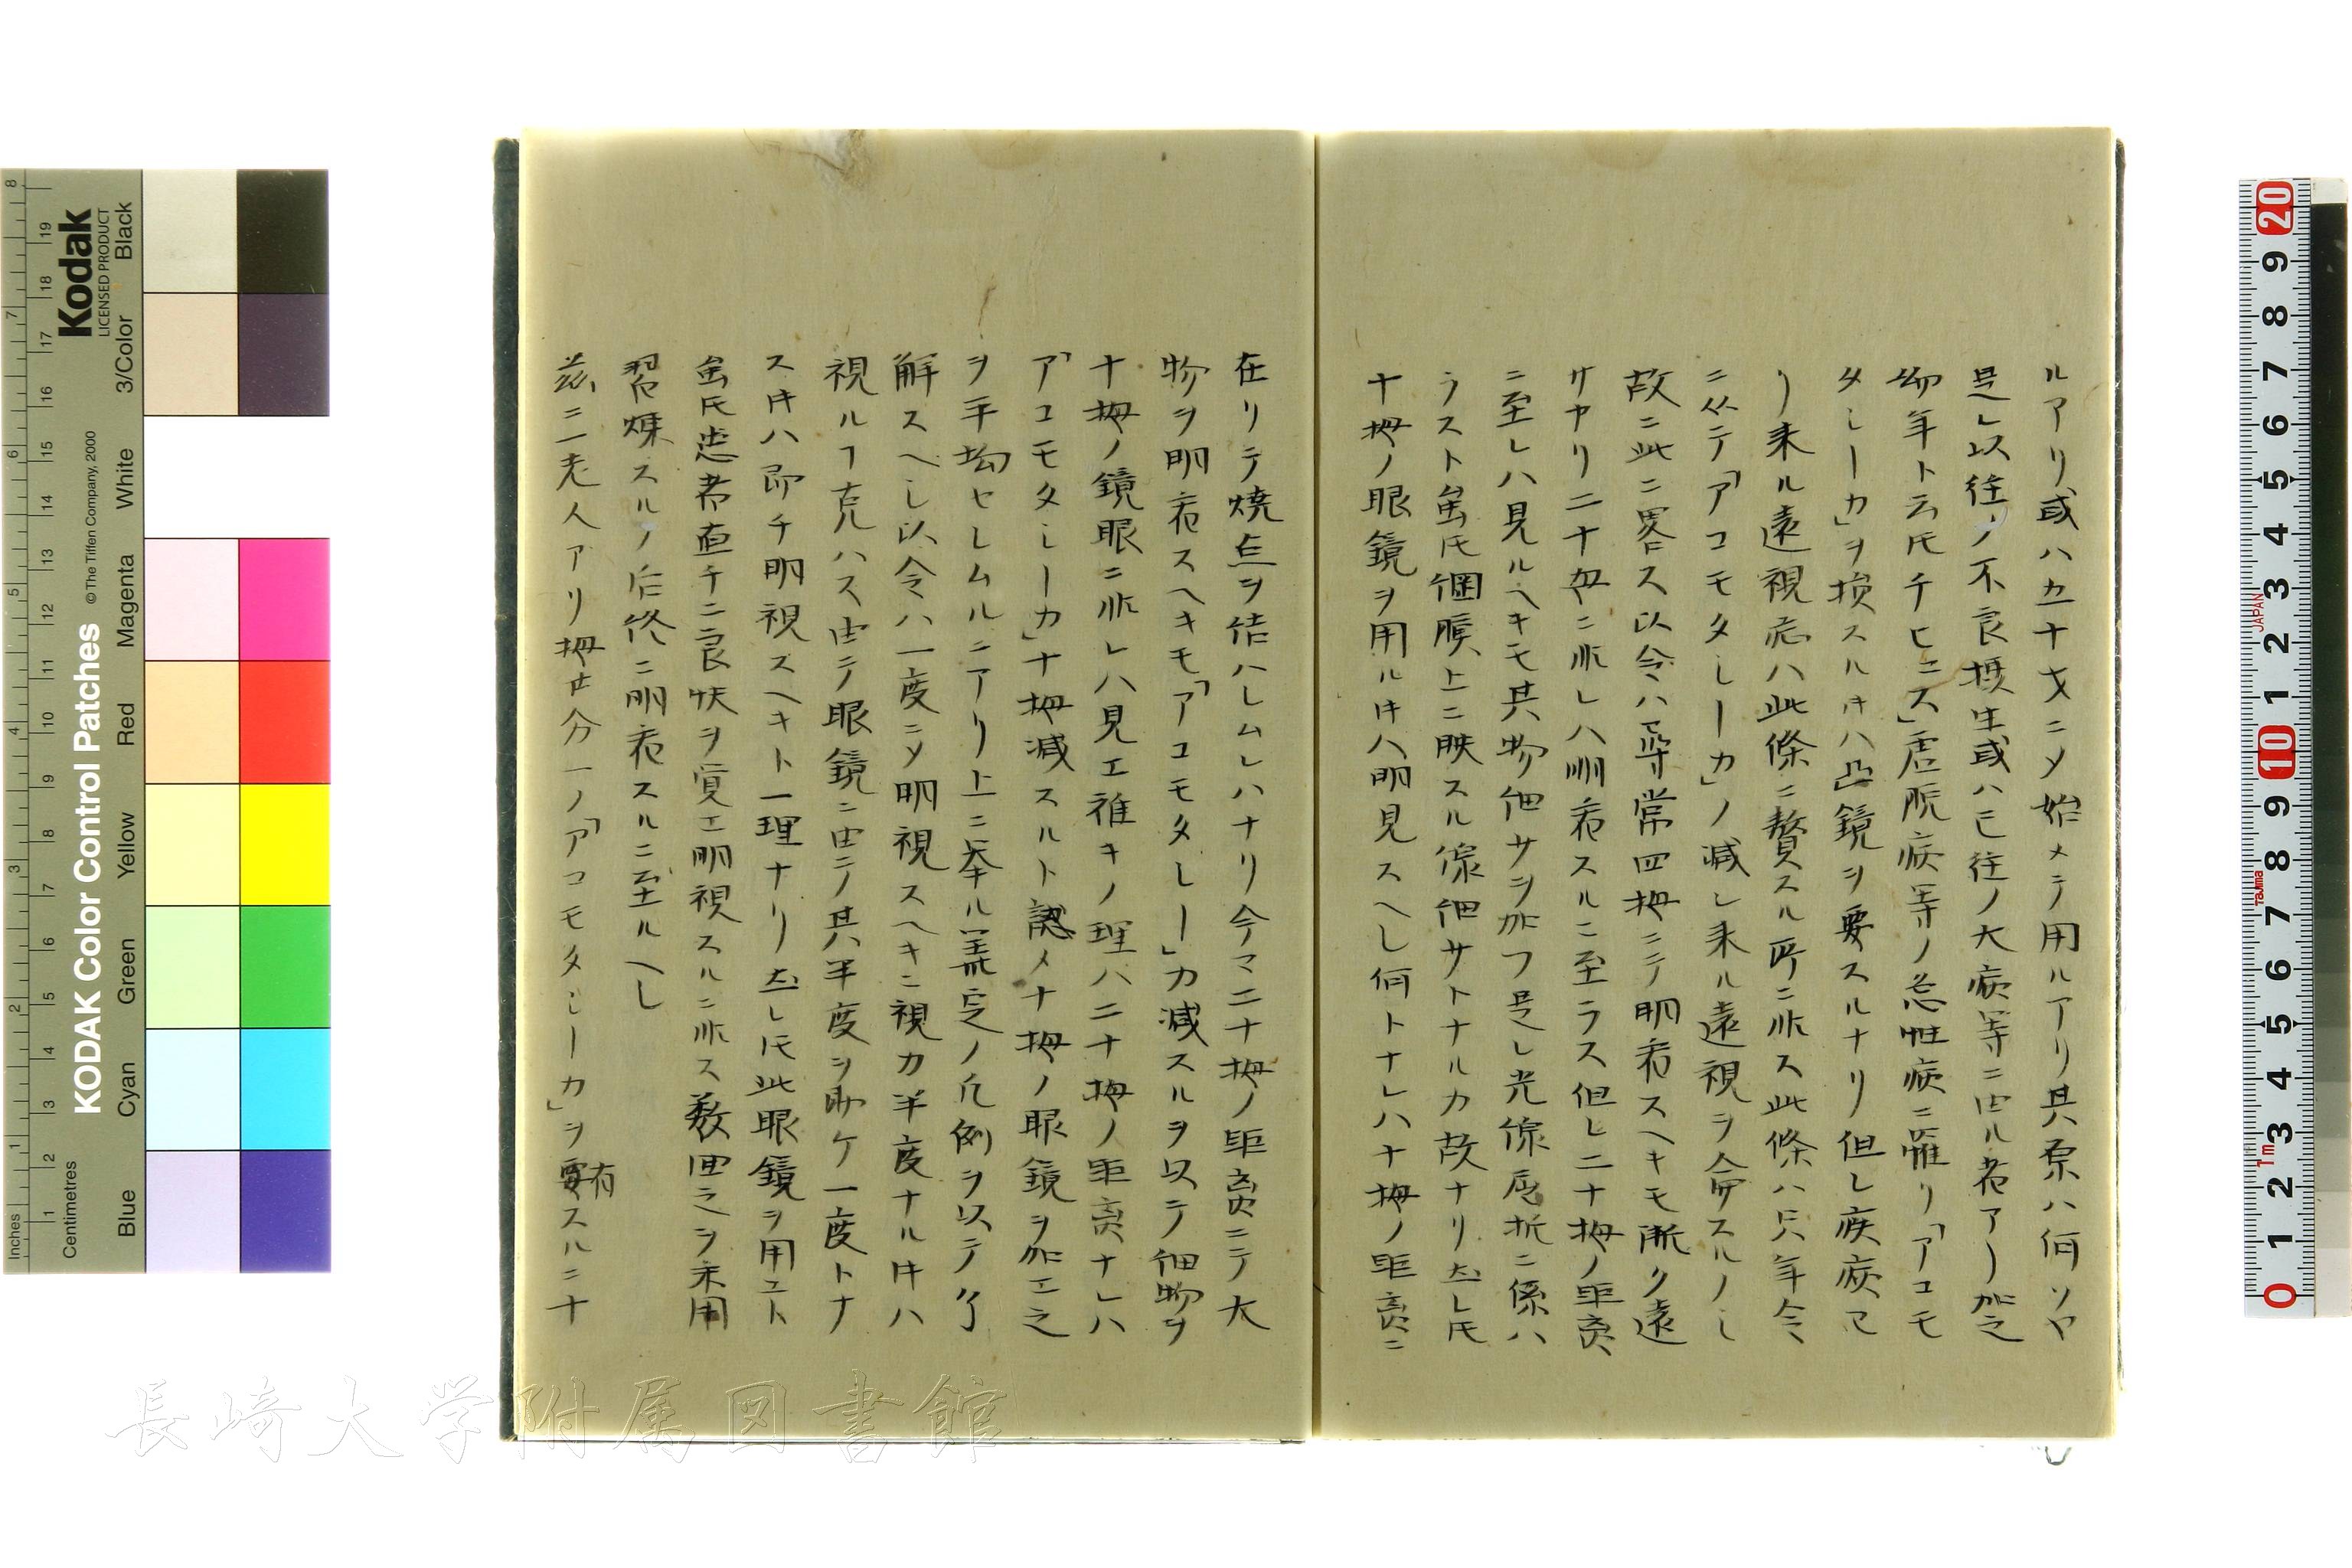 ルアリ或ハ五十才ニメ始メテ用ルアリ其原ハ何ソヤ
是レ以往ノ不良摂生或ハ已往ノ大病等ニ由ル者アリ加之
幼年ト云𪜈チヒユス」虚脱病等ノ急性病ニ罹リ「アコモ
タシーカ」ヲ損スルㇵ凸鏡ヲ要スルナリ但シ疾病ヨ
リ来ル遠視病ハ此條ニ贅スル所ニ非ス此條ハ只年令
ニ従テ「アコモタシーカ」ノ減シ来ル遠視ヲ論スルノミ
故ニ此ニ畧ス以令ハ尋常四拇ニテ明看スヘキモ漸ク遠
サカリ二十拇ニ非レハ明看スルニ至ラス但シ二十拇ノ距离
ニ至レハ見ルヘキモ其物細サヲ加フ是レ光線屈折ニ係ハ
ラスト虽𪜈網膜上ニ映スル像細サトナルカ故ナリ然レ𪜈
十拇ノ眼鏡ヲ用ル片ハ明見スヘし何トナレハ十拇ノ距离ニ
在リテ焼点ヲ結ハシムレハナリ今マ二十拇ノ距离ニテ大
物ヲ明看スヘキモ「アコモタシー」カ減スルヲ以テ細物ヲ
十拇ノ鏡眼ニ非レハ見エ難キノ理ハ二十拇ノ距离ナレハ
「アコモタシーカ」十拇減スルト認メ十拇ノ眼鏡ヲ加エ之
ヲ平均セシムルニアリ上ニ挙ル算定ノ凡例ヲ以テ了
解スヘし以令ハ一度ニメ明視スヘキニ視力半度ナル片ハ
視ルヿ克ハス由テ眼鏡ニ由テ其半度ヲ助ケ一度トナ
ス片ハ即チ明視スヘキト一理ナリ然レ𪜈此眼鏡ヲ用ユト
虽𪜈患者直チニ良状ヲ覚エ明視スルニ非ス数回之ヲ末用
習煉スルノ后終ニ明看スルニ至ルヘし
茲ニ一老人アリ拇廿分一ノ「アコモタシーカ」ヲ要スルニ十
有
長崎大学附属図書館
KODAK Color Control Patches
© The Tiffen Company, 2000
Kodak
LICENSED PRODUCT
Inches
Centimetres
Blue
Cyan
Green
Yellow
Red
Magenta
White
3/Color
Black
JAPAN
Tajima
1m